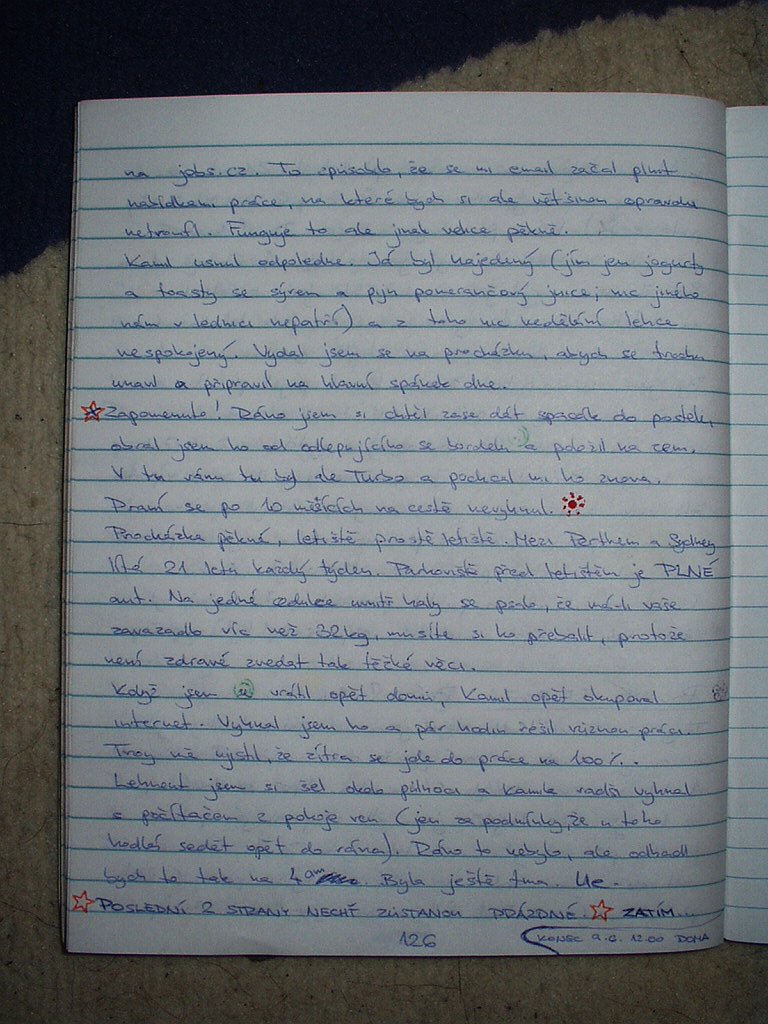 na jobs.cz. To způsobilo, že se mi email začal plnit
nabídkami práce, na které bych si ale většinou opravdu
netroufl. Funguje to ale jinak velice pěkně.
Kamil usnul odpoledne. Já byl najedený (jím jen jogurty
a toasty se sýrem a piju pomerančový juice; nic jiného
nám v lednici nepatří) a z toho nic nedělání lehce
nespokojený. Vydal jsem se na procházku, abych se trochu
unavil a připravil na hlavní spánek dne.
Zapomenuto! Ráno jsem si chtěl zase dát spacák do postele,
obral jsem ho od odlepujícího se bordelu a položil na zem.
V tu ránu tu byl ale Turbo a pochcal mi ho znova.
Praní se po 10 měsících na cestě nevyhnul.
Procházka pěkná, letiště prostě letiště. Mezi Perthem a Sydney
lítá 21 letů každý týden. Parkoviště před letištěm je PLNÉ
aut. Na jedné cedulce uvnitř haly se psalo, že má-li vaše
zavazadlo víc než 32kg, musíte si ho přebalit, protože
není zdravé zvedat tak těžké věci.
Když jsem se vrátil opět domů, Kamil opět okupoval
internet. Vyhnal jsem ho a pár hodin řešil různou práci.
Troy mě ujistil, že zítra se jde do práce na 100%.
Lehnout jsem si šel okolo půlnoci a Kamila radši vyhnal
s počítačem z pokoje ven (jen za podmínky, že u toho
hodlá sedět opět do rána). Ráno to nebylo, ale odhadl
bych to tak na 4am. Byla ještě tma. Ue.
POSLEDNÍ 2 STRANY NECHŤ ZŮSTANOU PRÁZDNÉ. ZATÍM...
126
KONEC 9.6. 12:00 DOMA